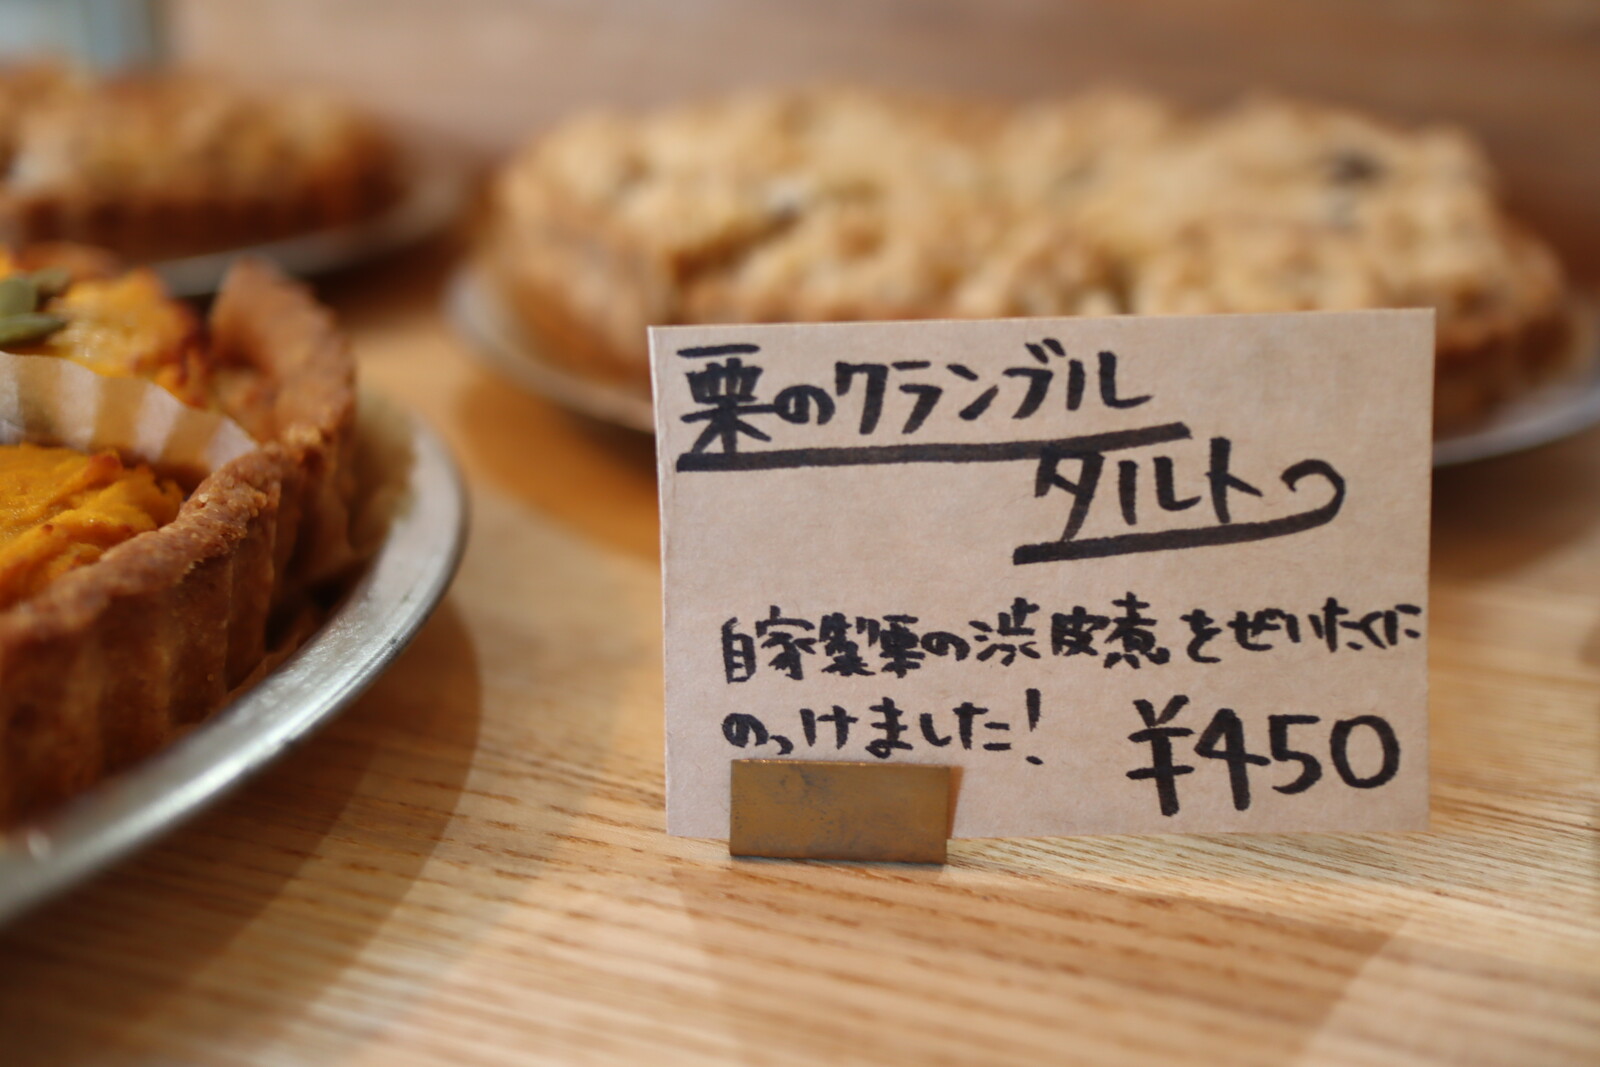 栗のクランブル
タルト
自家製栗の渋皮煮をぜいたくに
のっけました！
¥450